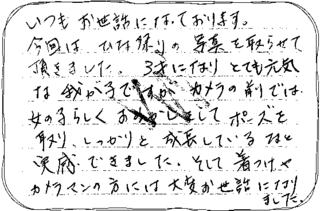 いつもお世話になっております。
今回はひな祭りの写真を取らせて
頂きました。3才になりとても元気
な我が子ですが カメラの前では
女の子らしくおめかししてポーズを
取り、しっかりと成長しているなと
実感できました。そして着つけや
カメラマンの方には大変お世話になり
ました。